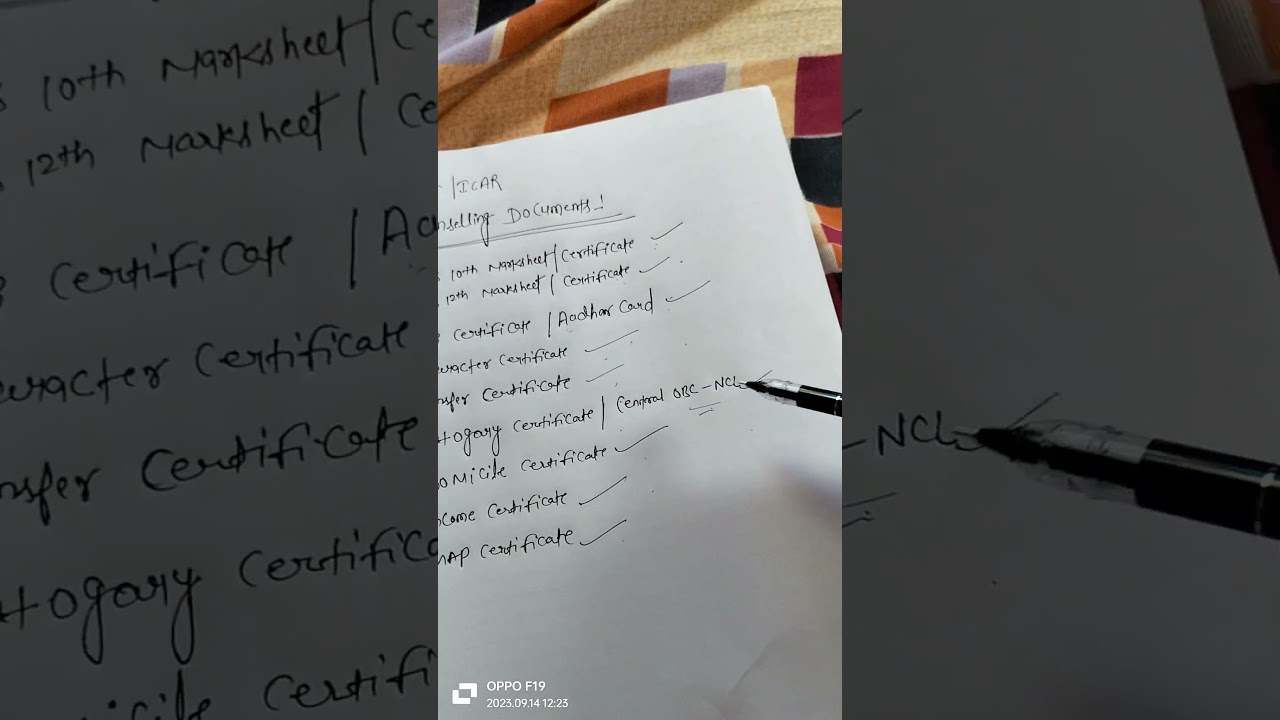 /ICAR
nselling Documents!
10th Marksheet/Certificate
12th Marksheet / Certificate
Certificate / Aadhar Card
aracter Certificate
nsfer Certificate
togary Certificate / Central OBC-NCL
omicile Certificate
come Certificate
MAP Certificate
OPPO F19
2023.09.14 12:23